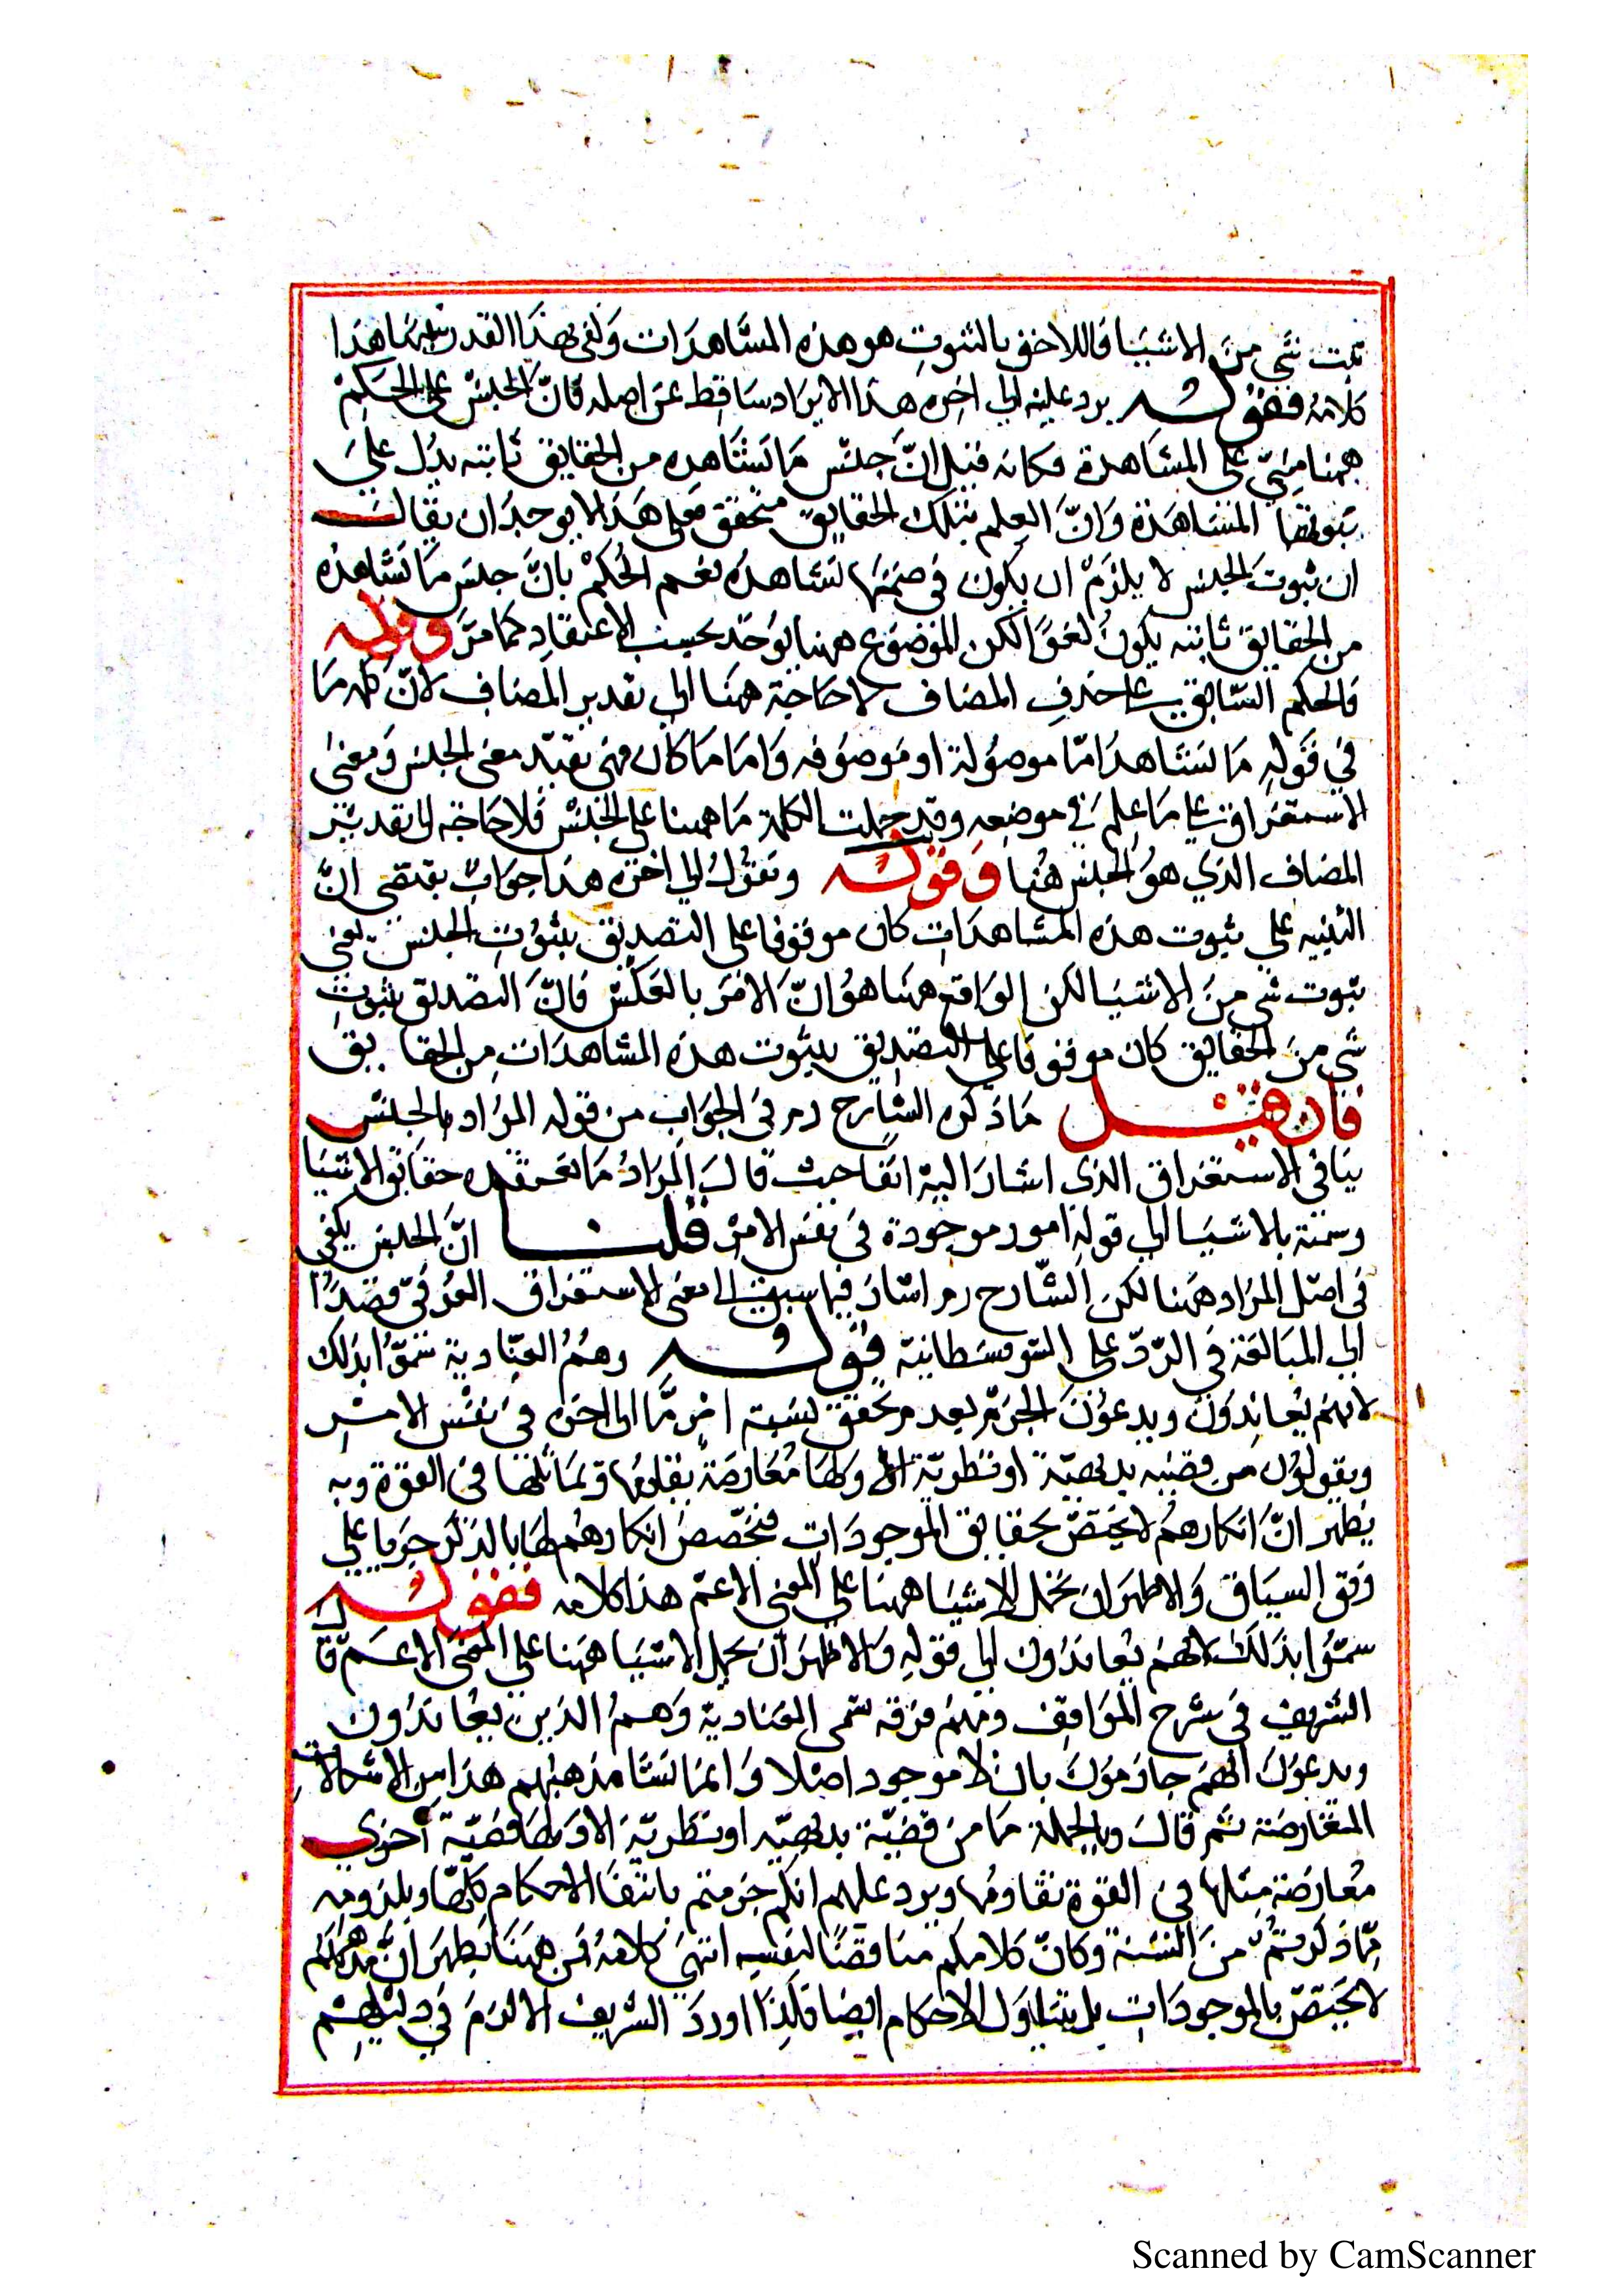 ثبت شي من الاشيا فاللاحق بالثبوت هو هذه المشاهدات وكفى بهذا القدر تنبيها هذا
كلامه فقوله يرد عليه الي اخره هذا الايراد ساقط عن اصله فان الجنس على الحكم
ههنا مبني على المشاهدة فكانه قيل ان جنس ما نشاهده من الحقايق ثابته يدل على
ثبوتها المشاهدة وان العلم بتلك الحقايق متحقق فعلى هذا لا يوجد ان يقال
ان ثبوت الجنس لا يلزم ان يكون في ضمنها نشاهده نعم الحكم بان جنس ما نشاهده
من الحقايق ثابته يكون لغوا لكن الموضوع ههنا يوخذ بحسب الاعتقاد كما مر وقوله
فالحكم السابق على حذف المضاف لا حاجة ههنا الي تقدير المضاف لان كلمه ما
في قوله ما نشاهد اما موصولة او موصوفه واما ما كان فهي تفيد معنى الجنس ومعنى
الاستغراق على ما علم في موضعه وقد حملت الكلمة ما ههنا على الجنس فلا حاجة الى تقدير
المضاف الذي هو الجنس هنا وقوله ونقول الي اخره هذا جواب يقتضي ان
التنبيه على ثبوت هذه المشاهدات كان موقوفا على التصديق بثبوت الجنس يعني
ثبوت شي من الاشيا لكن الواقع ههنا هو ان الامر بالعكس فان التصديق بثبوت
شي من الحقايق كان موقوفا على التصديق بثبوت هذه المشاهدات من الحقايق
فان قيل ما ذكره الشارح رم في الجواب من قوله المراد بالجنس
ينافي الاستغراق الذي اشار اليه انفا حيث قال المراد ما نعتقده حقايق الاشيا
وسمته بالاشيا الي قوله امور موجودة في نفس الامر قلنا ان الجنس يكفي
في اصل المراد ههنا لكن الشارح رم اشار فيما سبق الى معنى الاستغراق العرفي قصدا
الي المبالغة في الرد على السوفسطاينة قوله وهم العنادية سموا بذلك
لانهم يعاندون ويدعون الجزم بعدم تحقق نسبة امر ما الى اخره في نفس الامر
ويقولون من قضيه بديهية او نظرية الا ولها معارضة يقاومها وتماثلها في القوة وبه
يظهر ان انكارهم لا يختص بحقايق الموجودات فتخصص انكارهم لها بالذكر جريا على
وفق السياق والاظهر ان تحمل الاشيا ههنا على المعنى الاعم هذا كلامه فقوله
سموا بذلك لانهم يعاندون الي قوله والاظهر ان يحمل الاشيا ههنا على المعنى الاعم قال
الشريف في شرح المواقف ومنهم فرقه تسمى العنادية وهم الذين يعاندون
ويدعون انهم جازمون بان لا موجود اصلا وانما نشا مذهبهم هذا من الاشكالات
المتعارضة ثم قال وبالجملة ما من قضية بديهيه او نظرية الا ولها قضية اخرى
معارضة مثلها في القوة تقاومها ويرد عليهم انكم جزمتم بانتفا الاحكام كلها ويلزومه
مما ذكرتم من الشبهة وكان كلامكم مناقضا لنفسه انتهى كلامه فمن ههنا يظهر ان مذهبهم
لا يختص بالموجودات بل يتناول الاحكام ايضا فلذا اورد الشريف الالزم في دليلهم
Scanned by CamScanner